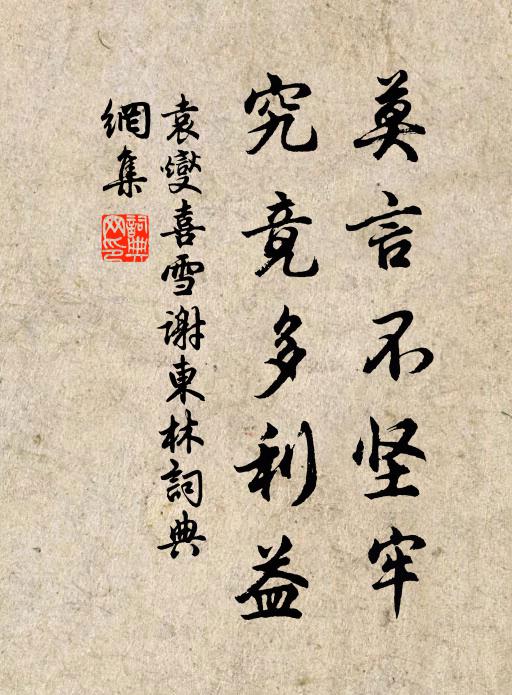 莫言不坚牢
究竟多利益
袁燮喜雪谢東林詞典
網集
詞典
网印